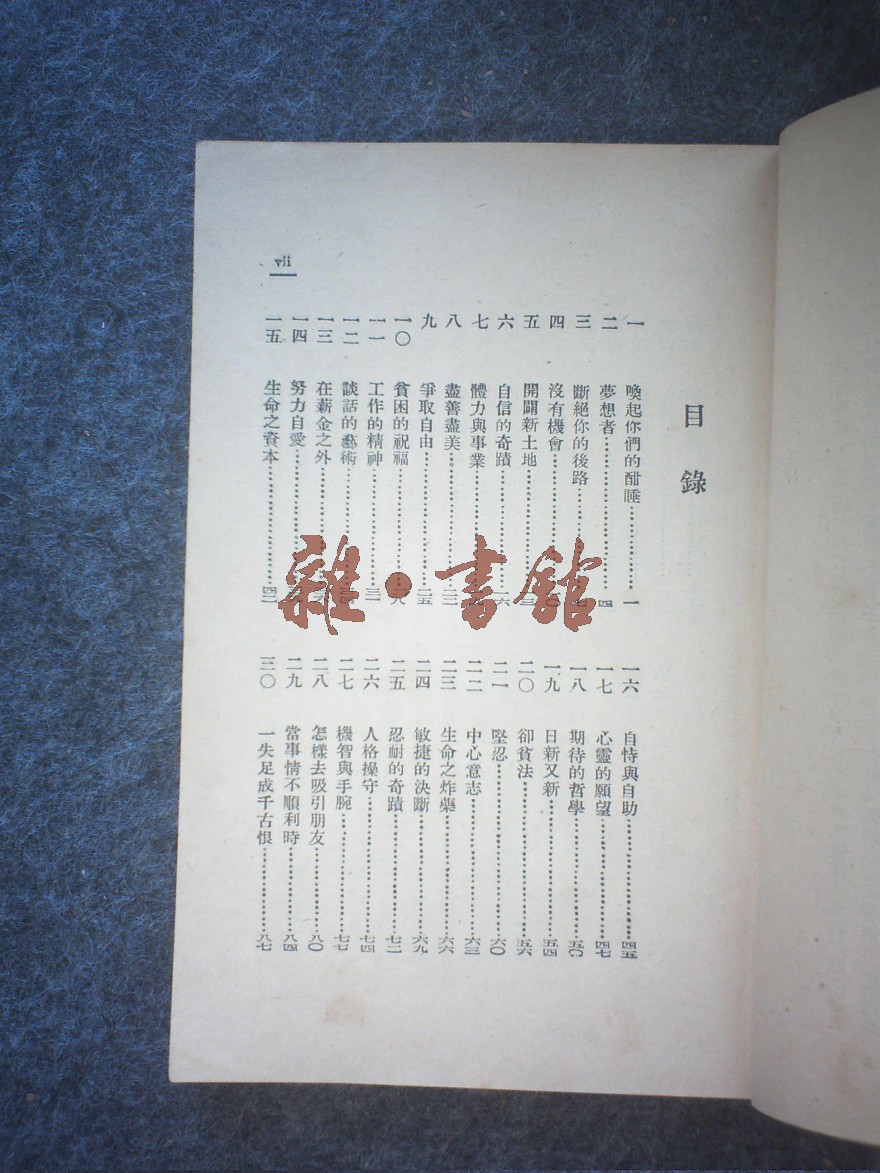 目錄
一 喚起你們的酣睡 一
二 夢想者 四
三 斷絕你的後路 七
四 沒有機會 〇
五 開闢新土地
六 自信的奇蹟 一六
七 體力與事業
八 盡善盡美 二二
九 爭取自由 二五
一〇 貧困的祝福 二八
一一 工作的精神 三一
一二 談話的藝術
一三 在薪金之外
一四 努力自愛
一五 生命之資本 四二
一六 自恃與自助 四五
一七 心靈的願望 四七
一八 期待的哲學 五〇
一九 日新又新 五四
二〇 卻貧法 五六
二一 堅忍 六〇
二二 中心意志 六三
二三 生命之炸藥 六六
二四 敏捷的決斷 六九
二五 忍耐的奇蹟 七二
二六 人格操守 七四
二七 機智與手腕 七七
二八 怎樣去吸引朋友 八〇
二九 當事情不順利時 八四
三〇 一失足成千古恨 八七
vii
雜·書館